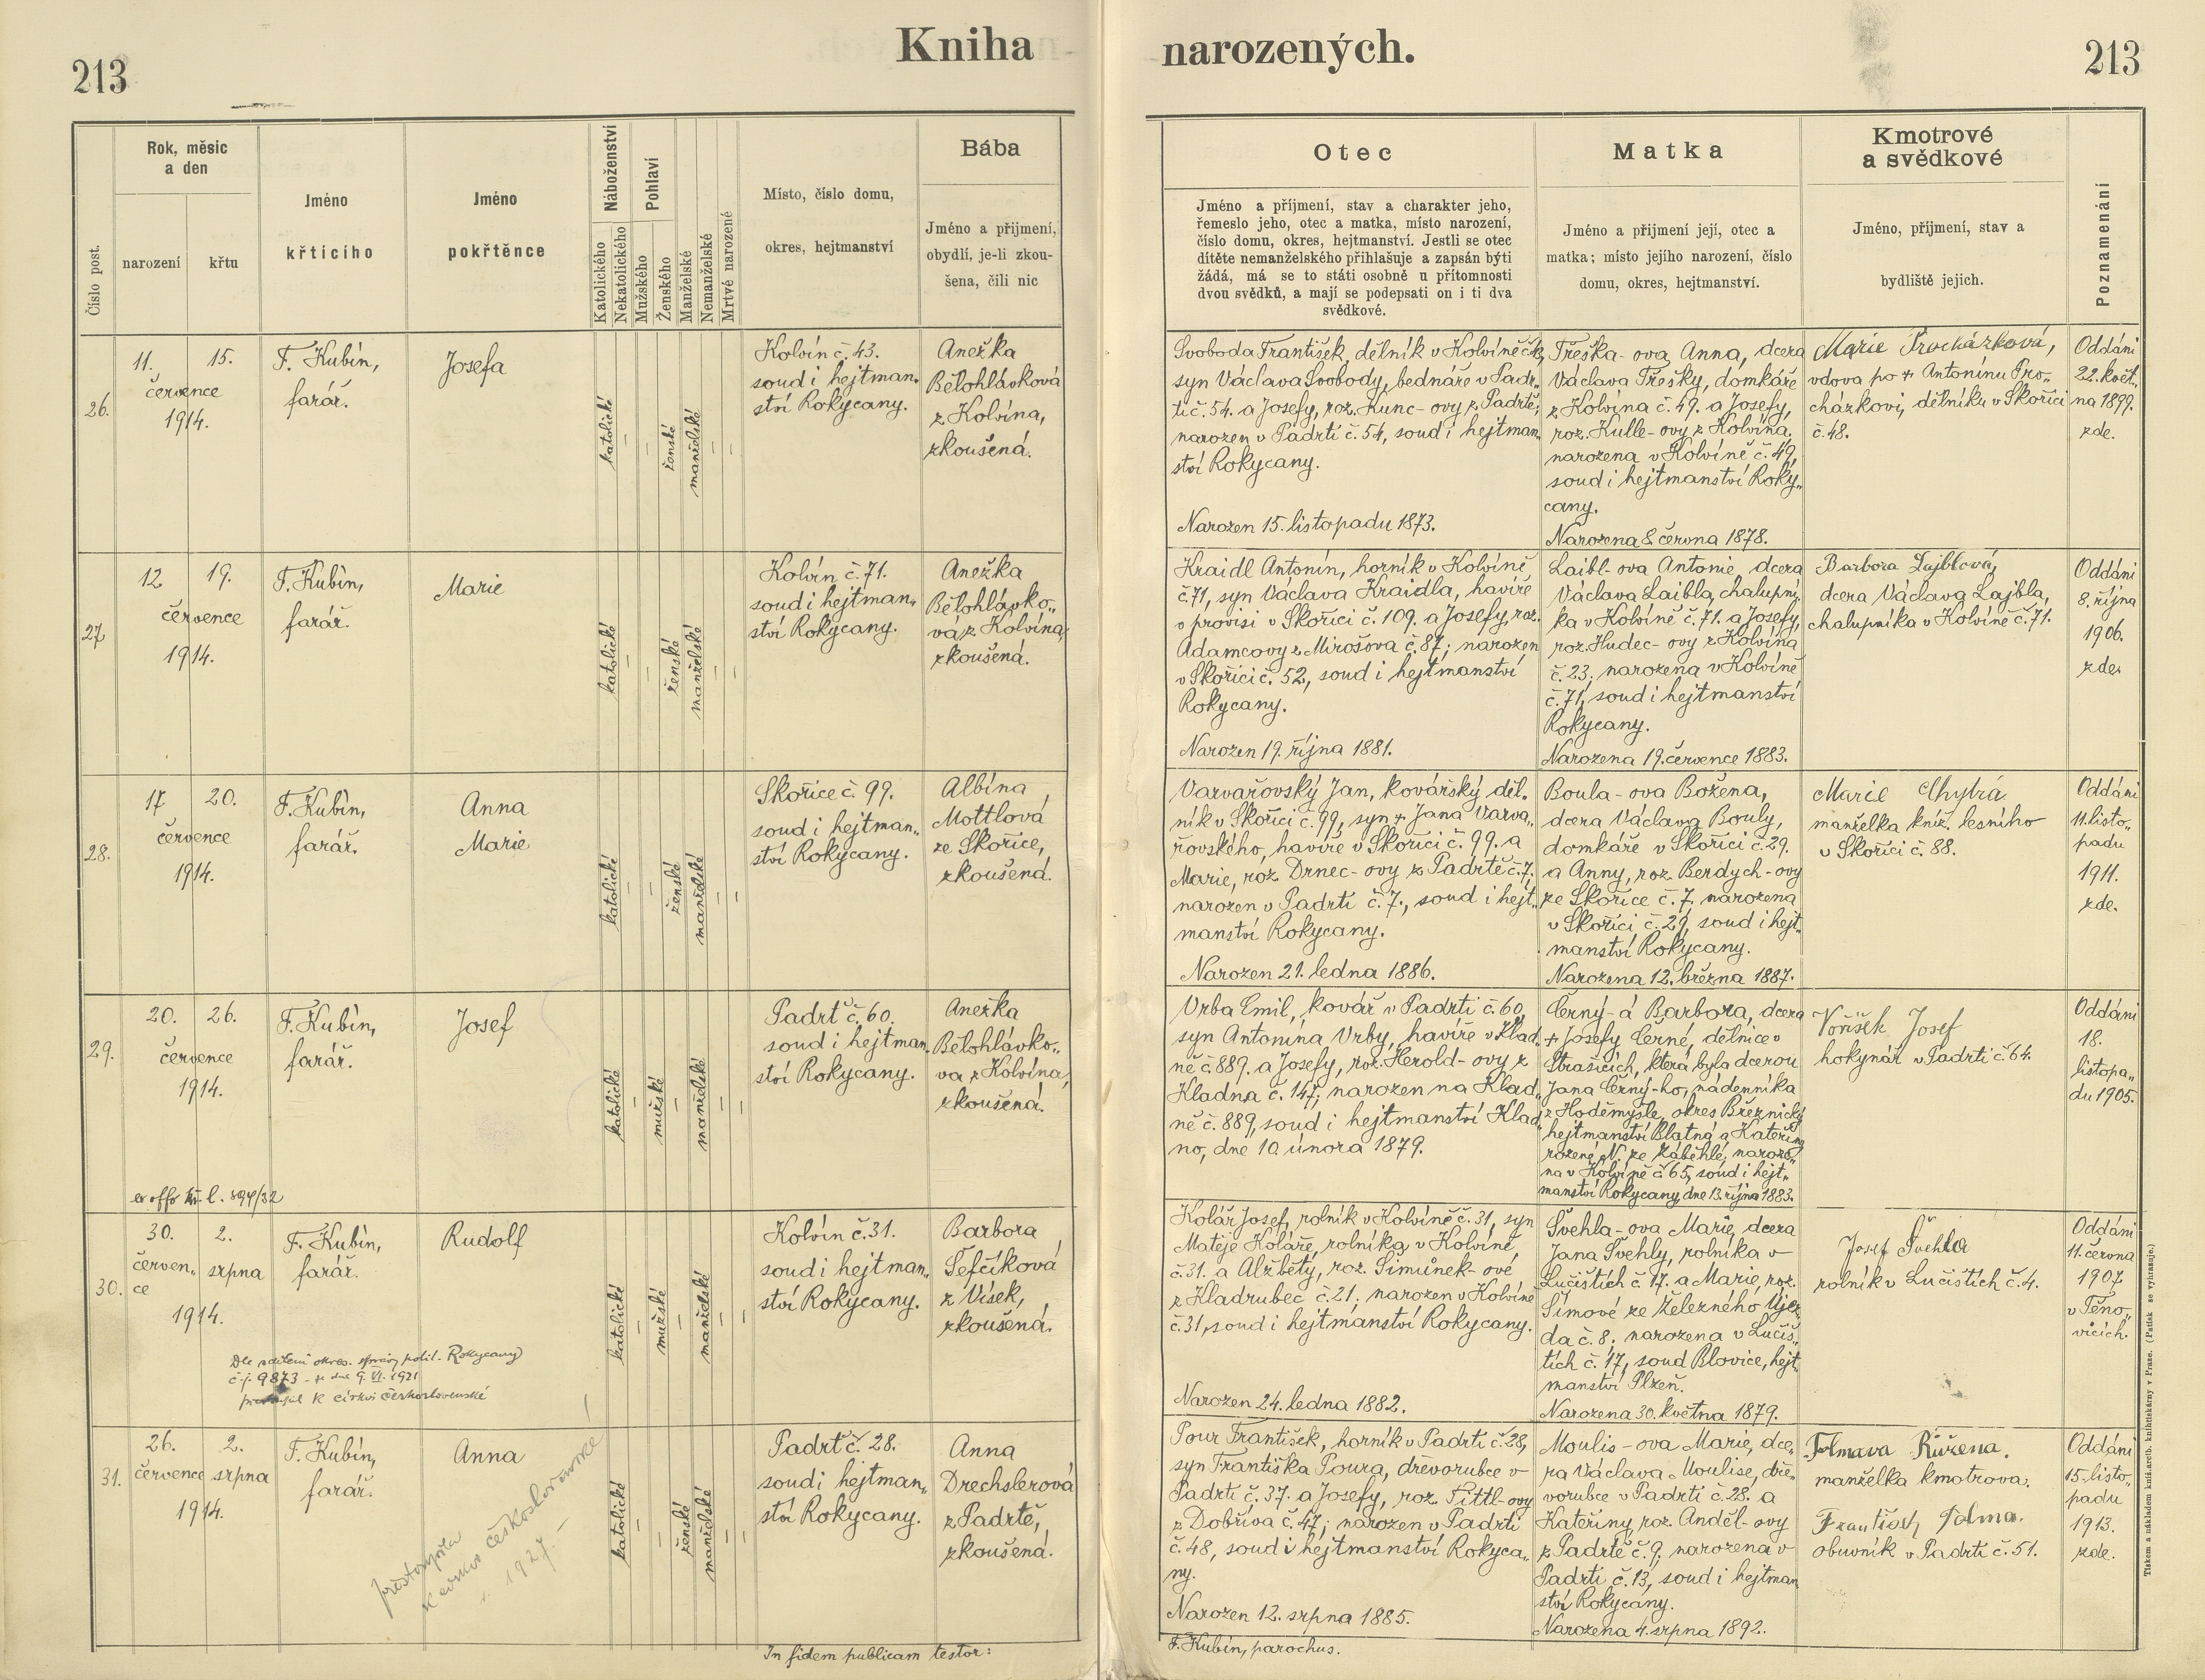 213
Kniha narozených.
213
Číslo post.
Rok, měsíc
a den
narození
křtu
Jméno
křticího
Jméno
pokřtěnce
Náboženství
Katolického
Nekatolického
Pohlaví
Mužského
Ženského
Manželské
Nemanželské
Mrtvě narozené
Místo, číslo domu,
okres, hejtmanství
Bába
Jméno a přijmení,
obydlí, je-li zkou-
šena, čili nic
Otec
Jméno a příjmení, stav a charakter jeho,
řemeslo jeho, otec a matka, místo narození,
číslo domu, okres, hejtmanství. Jestli se otec
dítěte nemanželského přihlašuje a zapsán býti
žádá, má se to státi osobně u přítomnosti
dvou svědků, a mají se podepsati on i ti dva
svědkové.
Matka
Jméno a přijmení její, otec a
matka; místo jejího narození, číslo
domu, okres, hejtmanství.
Kmotrové
a svědkové
Jméno, příjmení, stav a
bydliště jejich.
Poznamenání
26.
11.
15.
července
1914.
F. Kubín,
farář.
Josefa
katolické
–
–
ženské
manželské
–
–
Kolvín č. 43.
soud i hejtman„
ství Rokycany.
Anežka
Bělohlávková
z Kolvína,
zkoušená.
Svoboda František, dělník v Kolvíně č.
syn Václava Svobody, bednáře v Padr„
ti č. 54. a Josefy, roz. Kunc-ovy z Padrtě;
narozen v Padrti č. 54, soud i hejtman„
ství Rokycany.
Narozen 15. listopadu 1873.
Třeška-ova Anna, dcera
Václava Třešky, domkáře
z Kolvína č. 49. a Josefy,
roz. Kulle-ovy z Kolvína,
narozena v Kolvíně č. 49,
soud i hejtmanství Roky„
cany.
Narozena 8. června 1878.
Marie Procházková,
vdova po + Antonínu Pro„
cházkovi, dělníku v Skořici
č. 48.
Oddáni
22. květ„
na 1899.
zde.
27
12.
19.
července
1914.
F. Kubín,
farář.
Marie
katolické
–
–
ženské
manželské
–
–
Kolvín č. 71.
soud i hejtman„
ství Rokycany.
Anežka
Bělohlávko„
vá z Kolvína,
zkoušená.
Kraidl Antonín, horník v Kolvíně
č. 71, syn Václava Kraidla, havíře
v provisi v Skořici č. 109. a Josefy, roz.
Adamcovy z Mirošova č. 87; narozen
v Skořici č. 52, soud i hejtmanství
Rokycany.
Narozen 19. října 1881.
Laibl-ova Antonie, dcera
Václava Laibla, chalupní„
ka v Kolvíně č. 71. a Josefy,
roz. Hudec-ovy z Kolvína
č. 23; narozena v Kolvíně
č. 71, soud i hejtmanství
Rokycany.
Narozena 19. července 1883.
Barbora Lajblová,
dcera Václava Lajbla,
chalupníka v Kolvíně č. 71.
Oddáni
8. října
1906.
zde.
28.
17
20.
července
1914.
F. Kubín,
farář.
Anna
Marie
katolické
–
–
ženské
manželské
–
–
Skořice č. 99.
soud i hejtman„
ství Rokycany.
Albína
Mottlová
ze Skořice,
zkoušená.
Varvařovský Jan, kovářský děl„
ník v Skořici č. 99, syn + Jana Varva„
řovského, havíře v Skořici č. 99. a
Marie, roz. Drnec-ovy z Padrtě č. 7,
narozen v Padrti č. 7., soud i hejt„
manství Rokycany.
Narozen 21. ledna 1886.
Boula-ova Božena,
dcera Václava Bouly,
domkáře v Skořici č. 29.
a Anny, roz. Berdych-ovy
ze Skořice č. 7, narozena
v Skořici č. 29, soud i hejt„
manství Rokycany.
Narozena 12. března 1887.
Marie Chytrá
manželka kníž. lesního
v Skořici č. 88.
Oddáni
11. listo„
padu
1911.
zde.
29.
20.
26.
července
1914.
F. Kubín,
farář.
Josef
katolické
–
mužské
–
manželské
–
–
Padrť č. 60.
soud i hejtman„
ství Rokycany.
Anežka
Bělohlávko„
va z Kolvína,
zkoušená.
Vrba Emil, kovář v Padrti č. 60,
syn Antonína Vrby, havíře v Klad„
ně č. 889. a Josefy, roz. Herold-ovy z
Kladna č. 147; narozen na Klad„
ně č. 889, soud i hejtmanství Klad„
no, dne 10. února 1879.
Černý-á Barbora, dcera
+ Josefy Černé, dělnice v
Strašicích, která byla dcerou
Jana Černý-ho, nádenníka
z Hoděmyšle, okres Březnický
hejtmanství Blatná a Kateřiny
rozené N. ze Záběhlé, naroze„
na v Kolvíně č 65, soud i hejt„
manství Rokycany, dne 13. října 1883.
Voříšek Josef
hokynář v Padrti č. 64.
Oddáni
18.
listopa„
du 1905.
l. 894/32
30.
30.
2.
červen„
ce
srpna
1914.
F. Kubín,
farář.
Rudolf
katolické
–
mužské
–
manželské
–
–
Kolvín č. 31.
soud i hejtman„
ství Rokycany.
Barbora
Šefčíková
z Vísek,
zkoušená.
Kolář Josef, rolník v Kolvíně č. 31, syn
Matěje Koláře, rolníka v Kolvíně
č. 31. a Alžběty, roz. Šimůnek-ové
z Kladrubec č. 21. narozen v Kolvíně
č. 31, soud i hejtmanství Rokycany.
Narozen 24. ledna 1882.
Švehla-ova Marie, dcera
Jana Švehly, rolníka v
Lučištích č. 17. a Marie, roz.
Šimové ze Železného Újez„
da č. 8, narozena v Lučiš„
tích č. 17, soud Blovice, hejt„
manství Plzeň.
Narozena 30. května 1879.
Josef Švehla
rolník v Lučištích č. 4.
Oddáni
11. června
1907
v Těno„
vicích.
Dle sdělení okres. správy polit. Rokycany
č. j. 9873 ze dne 9. VI. 1921
přestoupil k církvi československé
31.
26.
2.
července
srpna
1914.
F. Kubín,
farář.
Anna
přestoupila
k církvi československé
1927.
katolické
–
–
ženské
manželské
–
–
Padrť č. 28.
soud i hejtman„
ství Rokycany.
Anna
Drechslerová
z Padrtě,
zkoušená.
Pour František, horník v Padrti č. 28,
syn Františka Poura, dřevorubce v
Padrti č. 37. a Josefy, roz. Fittl-ovy
z Dobříva č. 47; narozen v Padrti
č. 48, soud i hejtmanství Rokyca„
ny.
Narozen 12. srpna 1885.
Moulis-ova Marie, dce„
ra Václava Moulise, dře„
vorubce v Padrti č. 28. a
Kateřiny, roz. Anděl-ovy
z Padrtě č. 9, narozena v
Padrti č. 13, soud i hejtman
ství Rokycany.
Narozena 4. srpna 1892.
Tolmava Růžena.
manželka kmotrova.
František Tolma.
obuvník v Padrti č. 51.
Oddáni
15. listo„
padu
1913.
zde.
In fidem publicam testor:
F. Kubín, parochus.
Tiskem a nákladem kníž. arcib. knihtiskárny v Praze. (Patisk se vyhrazuje.)